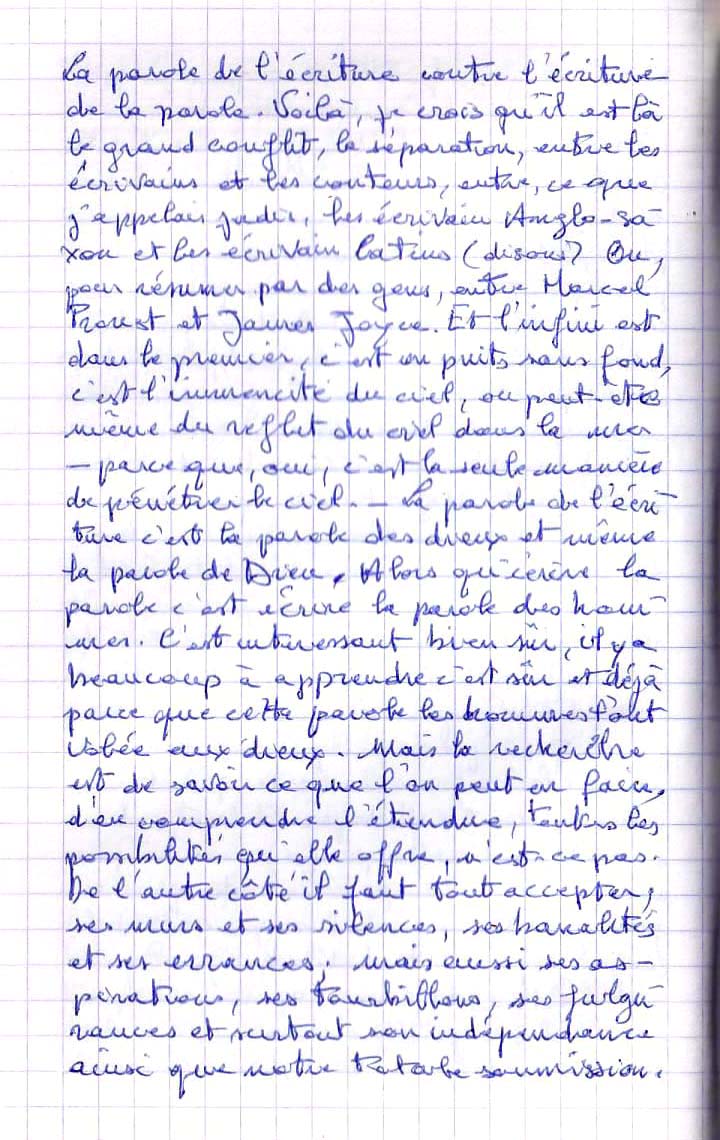 La parole de l'écriture contre l'écriture
de la parole. Voilà, je crois qu'il est là
le grand conflit, la séparation, entre les
écrivains et les conteurs, entre, ce que
j'appelais jadis, les écrivain Anglo-sa
xon et les écrivain latins (disons? Ou,
pour résumer par des gens, entre Marcel
Proust et James Joyce. Et l'infini est
dans le premier, c'est un puits sans fond,
c'est l'immencité du ciel, ou peut-être
même du reflet du ciel dans la mer
— parce que, oui, c'est la seule manière
de pénétrer le ciel. — La parole de l'écri
ture c'est la parole des dieux et même
la parole de Dieu. Alors qu'écrire la
parole c'est écrire la parole des hom-
mes. C'est intéressant bien sûr, il y a
beaucoup à apprendre c'est sûr et déjà
parce que cette parole les hommes l'ont
volée aux dieux. Mais la recherche
est de savoir ce que l'on peut en faire,
d'en comprendre l'étendue, toutes les
possibilités qu'elle offre, n'est-ce pas.
De l'autre côté il faut tout accepter,
ses murs et ses silences, ses banalités
et ses errances, mais aussi ses as-
pirations, ses tourbillons, ses fulgu
rances et surtout son indépendance
ainsi que notre totale soumission.